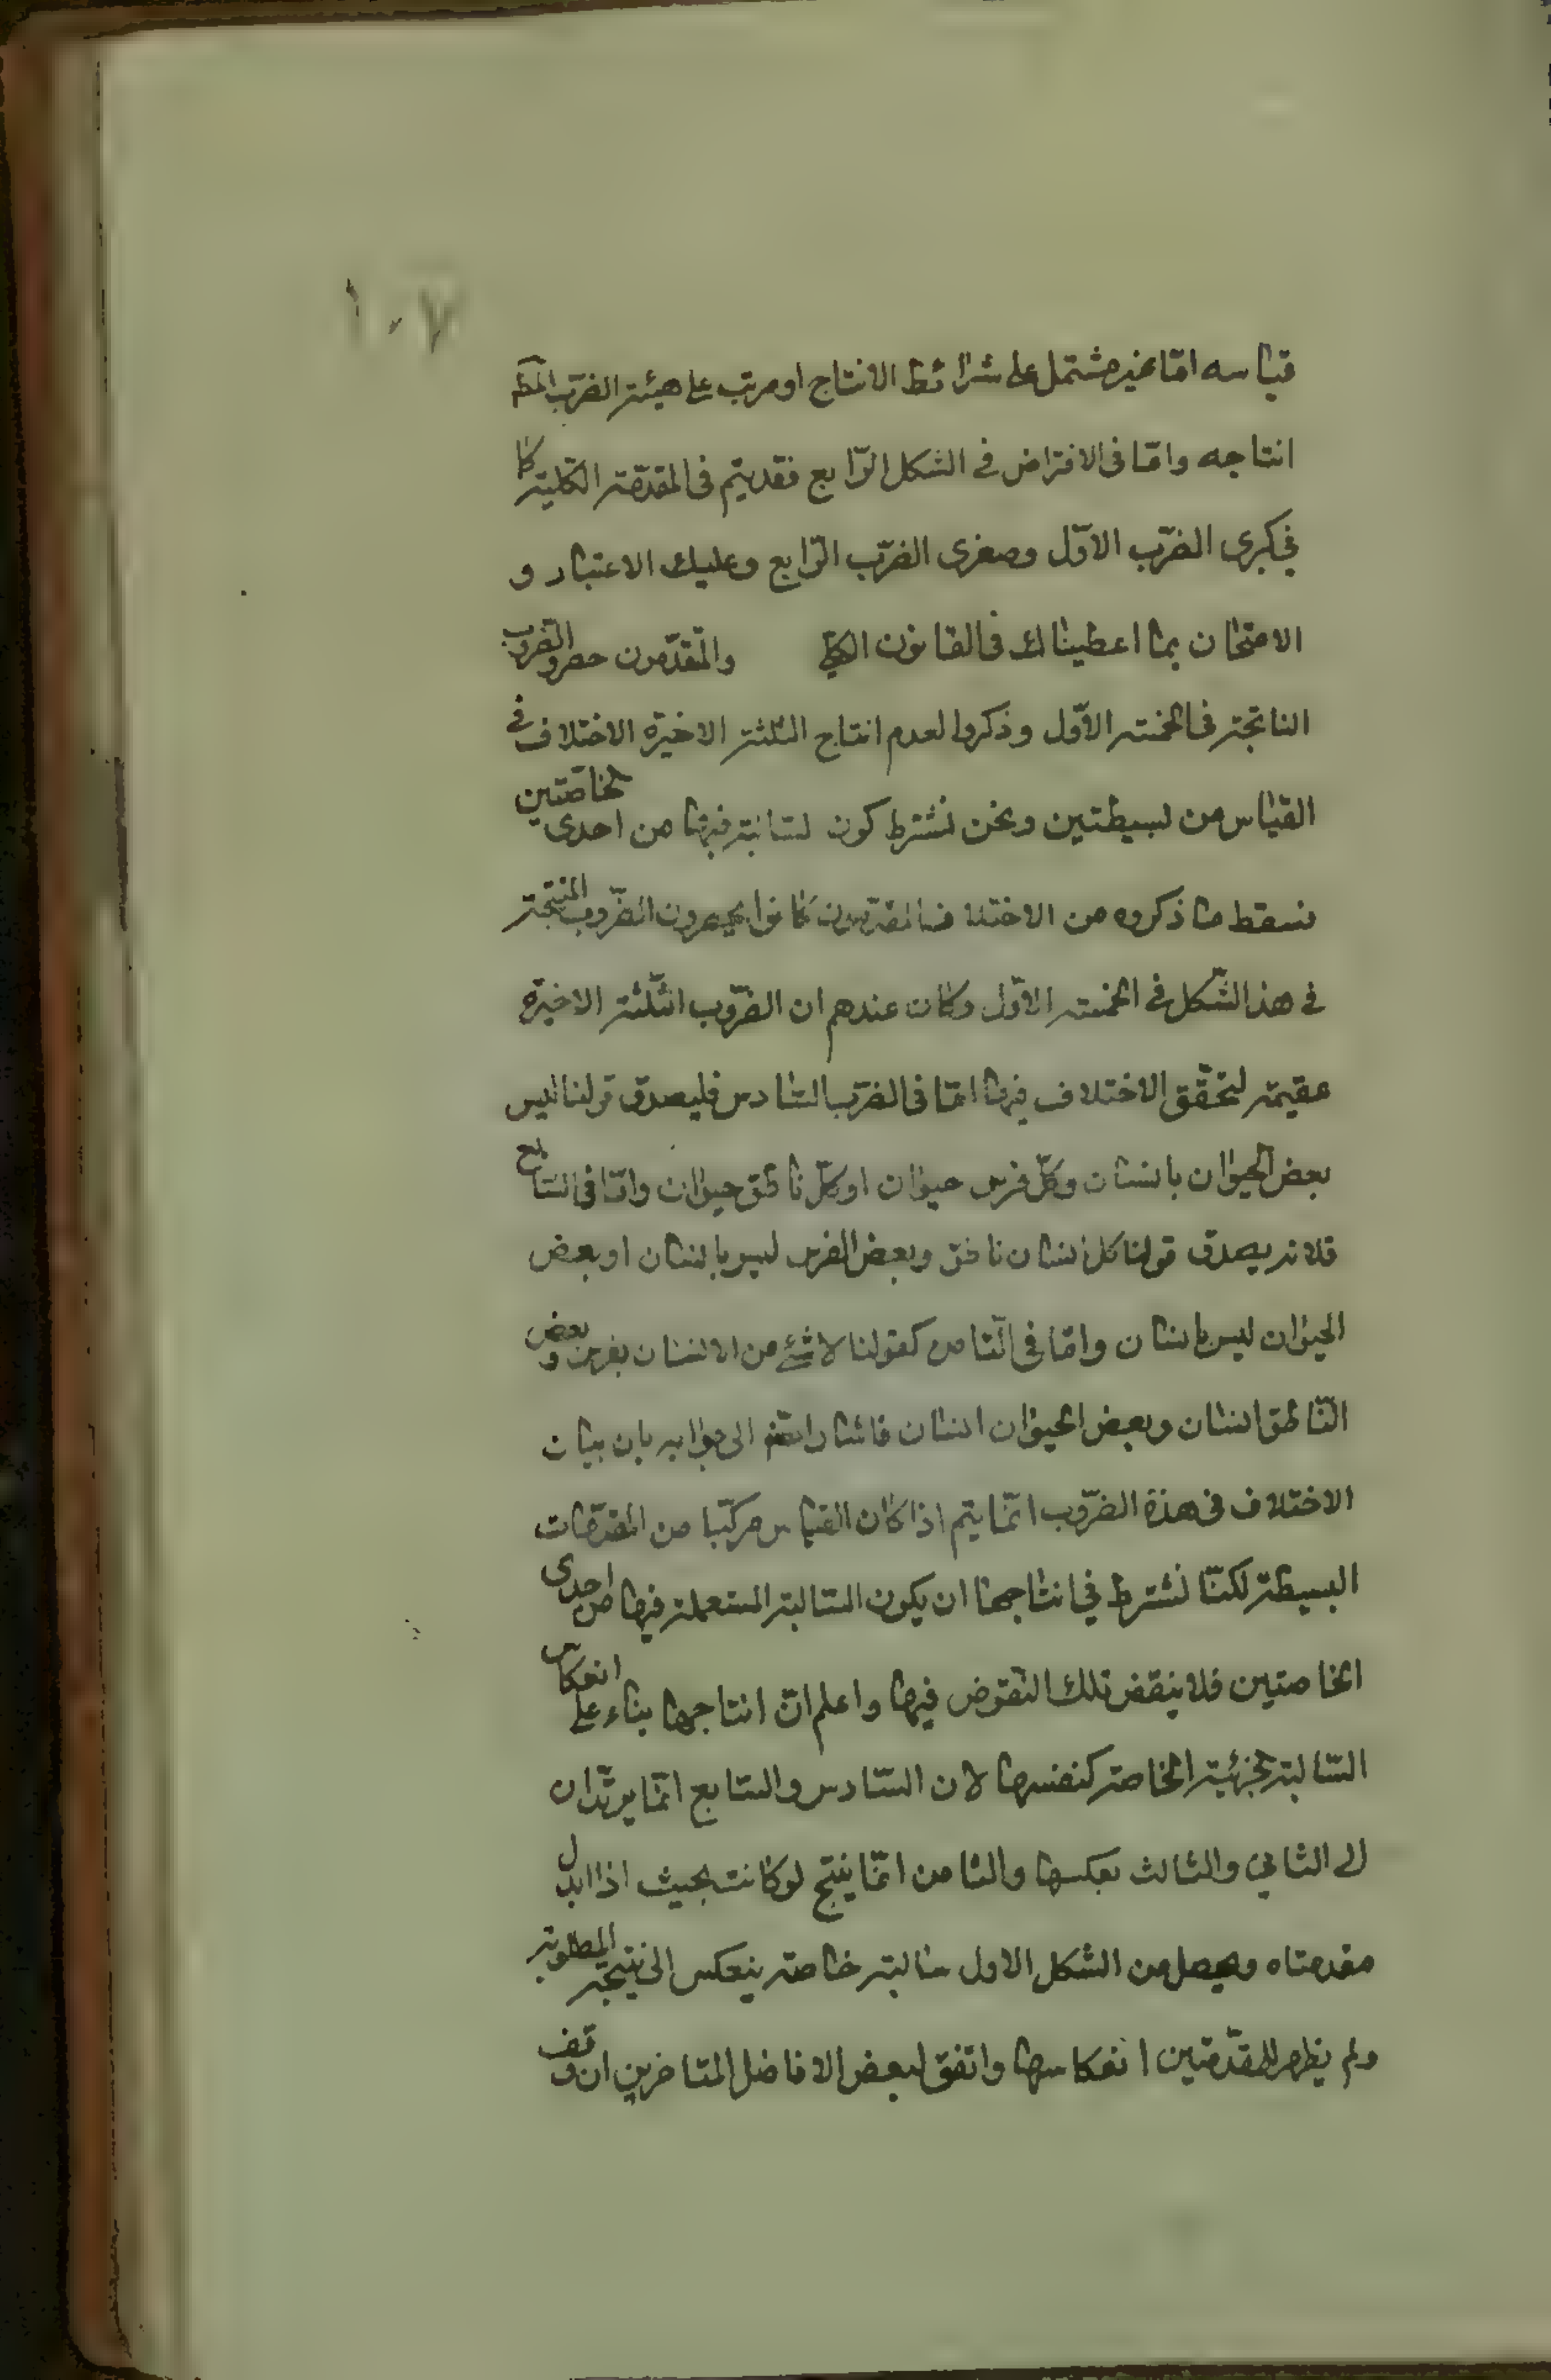 ١٠٧
قياسه امّا غير مشتمل على شرائط الانتاج او مرتب على هيئة الضّرب المط
انتاجه وامّا فى الافتراض فى الشكل الرّابع فقد يتم فى المقدّمة الكليّة كما
فى كبرى الضّرب الاوّل وصغرى الضّرب الرّابع وعليك الاعتبار و
الامتحان بما اعطيناك فى القانون الكلّى والمتقدّمون حصروا الضروب
الناتجة فى الخمسة الاوّل وذكروا لعدم انتاج الثلثة الاخيرة الاختلاف فى
القياس من بسيطتين ونحن نشترط كون السالبة فيها من احدى الخاصّتين
فسقط ما ذكروه من الاختلاف المتقدمون كانوا يحصرون الضّروب المنتجة
فى هذا الشّكل فى الخمسة الاوّل وكان عندهم ان الضّروب الثّلثة الاخيرة
عقيمة لتحقّق الاختلاف فيها امّا فى الضّرب السّادس فليصدق قولنا ليس
بعض الحيوان بانسان وكلّ فرس حيوان او كلّ ناطق حيوان وامّا فى السّابع
فلانه يصدق قولنا كل انسان ناطق وبعض الفرس ليس بانسان او بعض
الحيوان ليس بانسان وامّا فى الثّامن كقولنا لا شئ من الانسان بفرس وبعض
النّاطق انسان وبعض الحيوان انسان فاشار المصنف الى جوابه بان بيان
الاختلاف فى هذه الضّروب انّما يتم اذا كان القياس مركّبا من المقدّمات
البسيطة لكنّا نشترط فى انتاجها ان يكون السّالبة المستعملة فيها من احدى
الخاصتين فلا ينقض تلك النّقوض فيها واعلم انّ انتاجها بناء على انعكاس
السّالبة الجزئيّة الخاصة كنفسها لان السّادس والسّابع انّما يرتدّان
الى الثانى والثالث بعكسها والثامن انّما ينتج لو كانت بحيث اذا ابدل
مقدمتاه ويحصل من الشّكل الاول سالبة خاصة ينعكس الى نتيجة المطلوبة
ولم يظهر للمقدّمتين انعكاسها واتفق لبعض الافاضل المتاخرين ان وقف